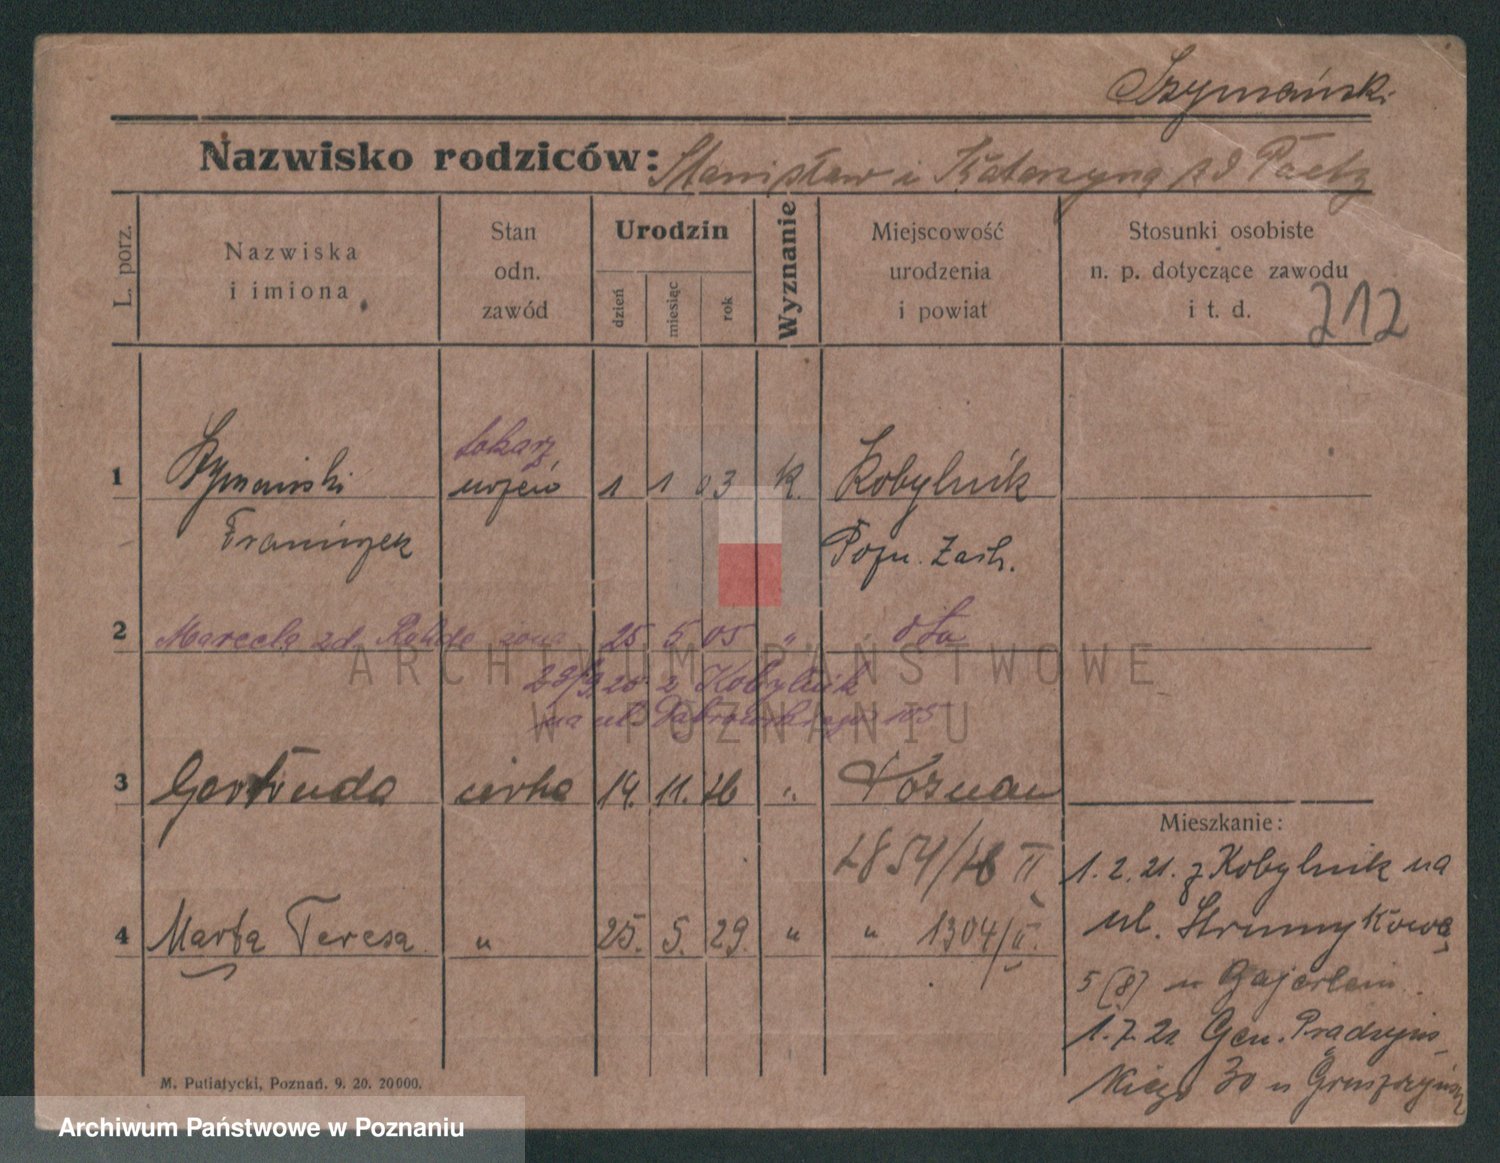 Szymański
Nazwisko rodziców: Stanisław i Katarzyna zd Paetz
L. porz.
Nazwiska
i imiona
Stan
odn.
zawód
Urodzin
dzień
miesiąc
rok
Wyznanie
Miejscowość
urodzenia
i powiat
Stosunki osobiste
n. p. dotyczące zawodu
i t. d.
212
tokarz
1 Szymański uczeń 1 1 03 K. Kobylnik
Franciszek Pozn. Zach.
2 Marcela zd. żona 25 5 05 " dto
z Kobylnik
na ul. Dąbrowskiego 105
3 Gertruda córka 14. 11. 26 " Poznań
Mieszkanie:
1854/26 II
1. 2. 21. z Kobylnik na
4 Marta Teresa " 25. 5. 29. " " 1304/II.
ul. Strumykowa
5 (8) u
1. 7. 21 Gen. Prądzyńs
kiego 30 u
M. Putiatycki, Poznań. 9. 20. 20000.
ARCHIWUM PAŃSTWOWE
W POZNANIU
Archiwum Państwowe w Poznaniu